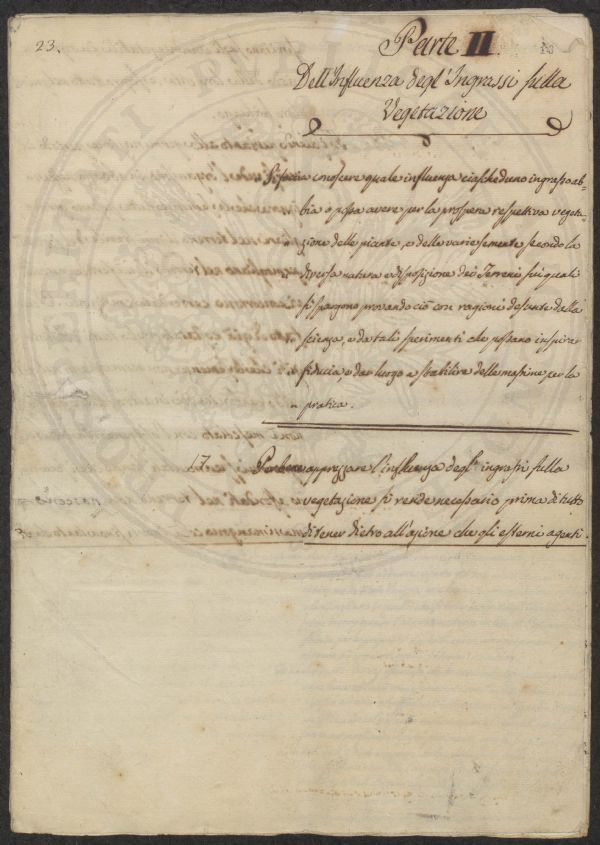 23.
Parte II.
Dell'Influenza degl'Ingrassi sulla
Vegetazione
Si faccia conoscere quale influenza ciascheduno ingrasso ab-
bia o possa avere per la prospera respettiva vegeta-
zione delle piante, o delle varie semente secondo la
diversa natura e disposizione dei Terreni sui quali
si spargono provando ciò con ragioni desunte dalla
scienza, e da tali sperimenti che possano inspirar
fiducia, e dar luogo a stabilire delle massime per la
pratica.
17. Per bene apprezzare l'influenza degl'ingrassi sulla
vegetazione si rende necessario prima di tutto
di tener dietro all'azione che gli esterni agenti